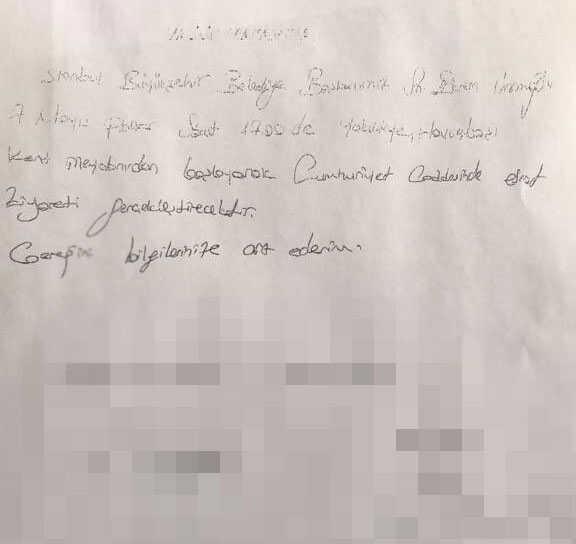 İstanbul Büyükşehir Belediye Başkanımız Sn. Ekrem İmamoğlu
7 Mayıs Pazar Saat 17.00 de
Kent meydanından başlayarak Cumhuriyet Caddesinde esnaf
Ziyareti gerçekleştirecektir.
Gereğini bilgilerinize arz ederim.